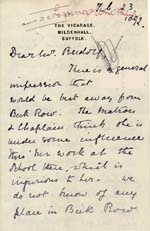 Feb. 23
1892.
THE VICARAGE,
MILDENHALL,
SUFFOLK.
Dear Mr. Rudolf
There is a general
impression that
would be best away from
Beck Row. The Matron
& Chaplain think she is
under some influence
there her work at the
School there, which is
injurious to her. We
do not know of any
place in Beck Row